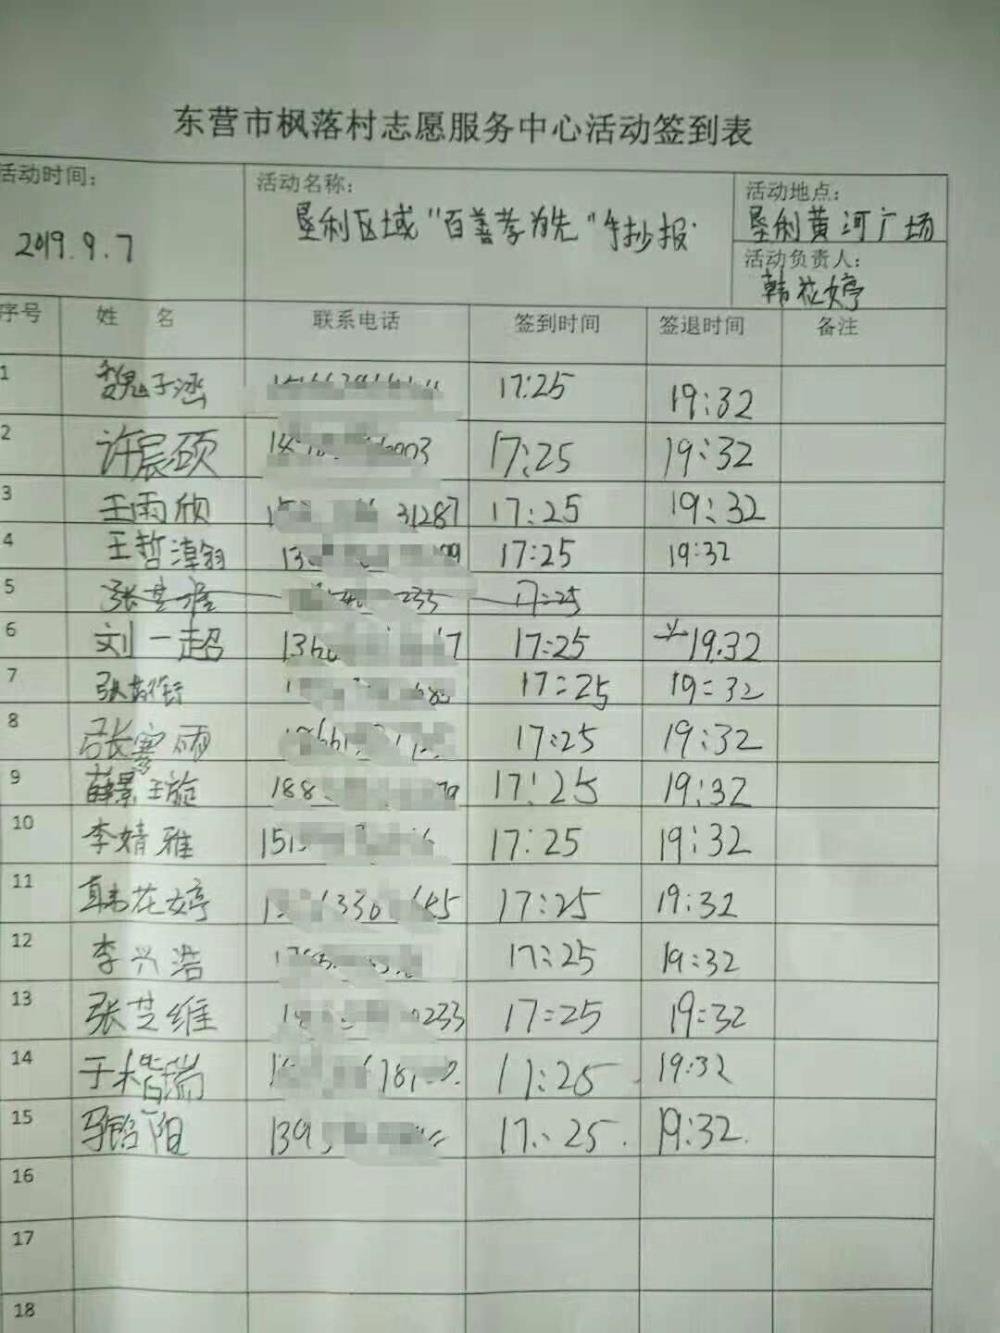 东营市枫落村志愿服务中心活动签到表
活动时间：
2019.9.7
活动名称：
垦利区域“百善孝为先”手抄报
活动地点：
垦利黄河广场
活动负责人：
韩花婷
序号 姓 名 联系电话 签到时间 签退时间 备注
1 魏子涵 17:25 19:32
2 许晨硕 17:25 19:32
3 王雨欣 31287 17:25 19:32
4 王哲 17:25 19:32
5 张芝维 233 17:25
6 刘一超 17:25 19.32
7 张 17:25 19:32
8 张雨 17:25 19:32
9 薛景璇 188 17:25 19:32
10 李婧雅 151 17:25 19:32
11 韩花婷 17:25 19:32
12 李兴浩 17:25 19:32
13 张芝维 0233 17:25 19:32
14 于楷瑞 17:25 19:32
15 阳 139 17:25 19:32
16
17
18